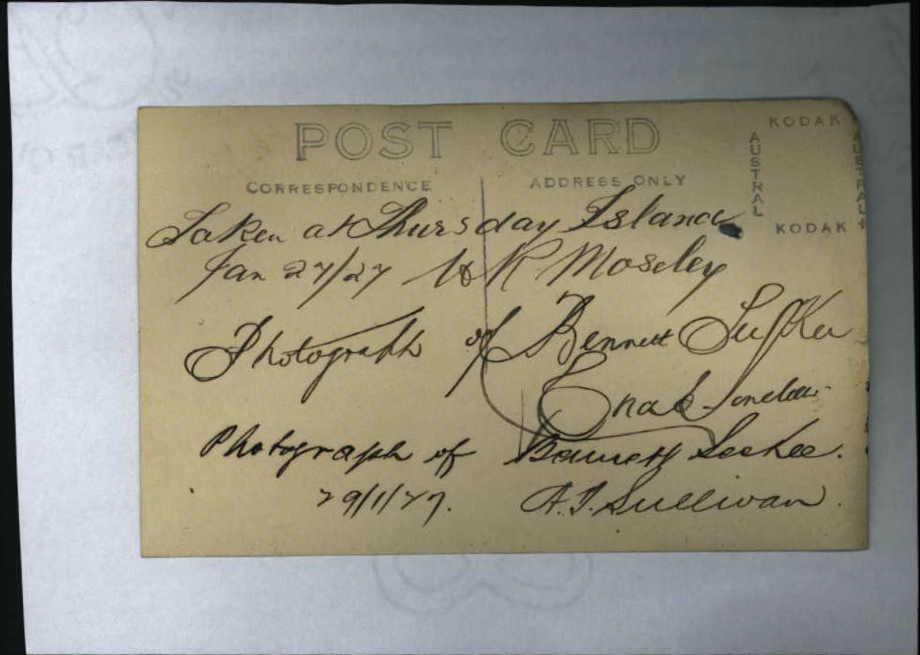 POST CARD
KODAK
AUSTRAL
AUSTRAL
CORRESPONDENCE
ADDRESS ONLY
KODAK
Taken at Thursday Island
Jan 27/27 H R Moseley
Photograph of Bennett
Photograph of
29/1/27. A.J. Sullivan